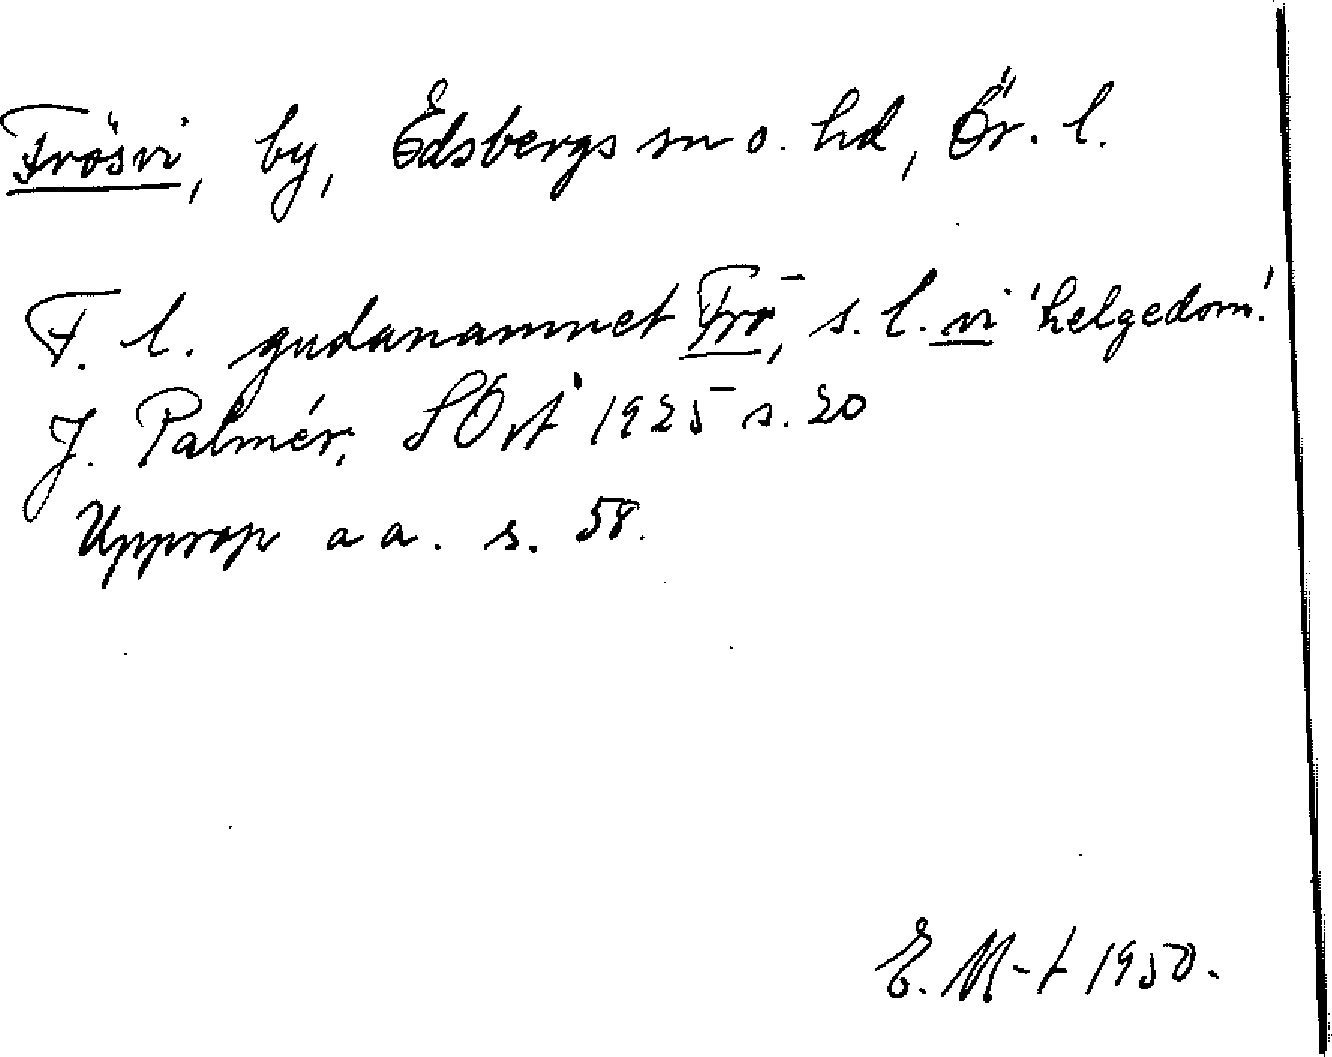 Frösvi, by, Edsbergs sn o. hd, Ör. l.
F. l. gudanamnet Frö, s. l. vi 'helgedom'.
J. Palmér, SOrt 1925 s. 20
Upprop a a. s. 58.
E. M-t 1950.